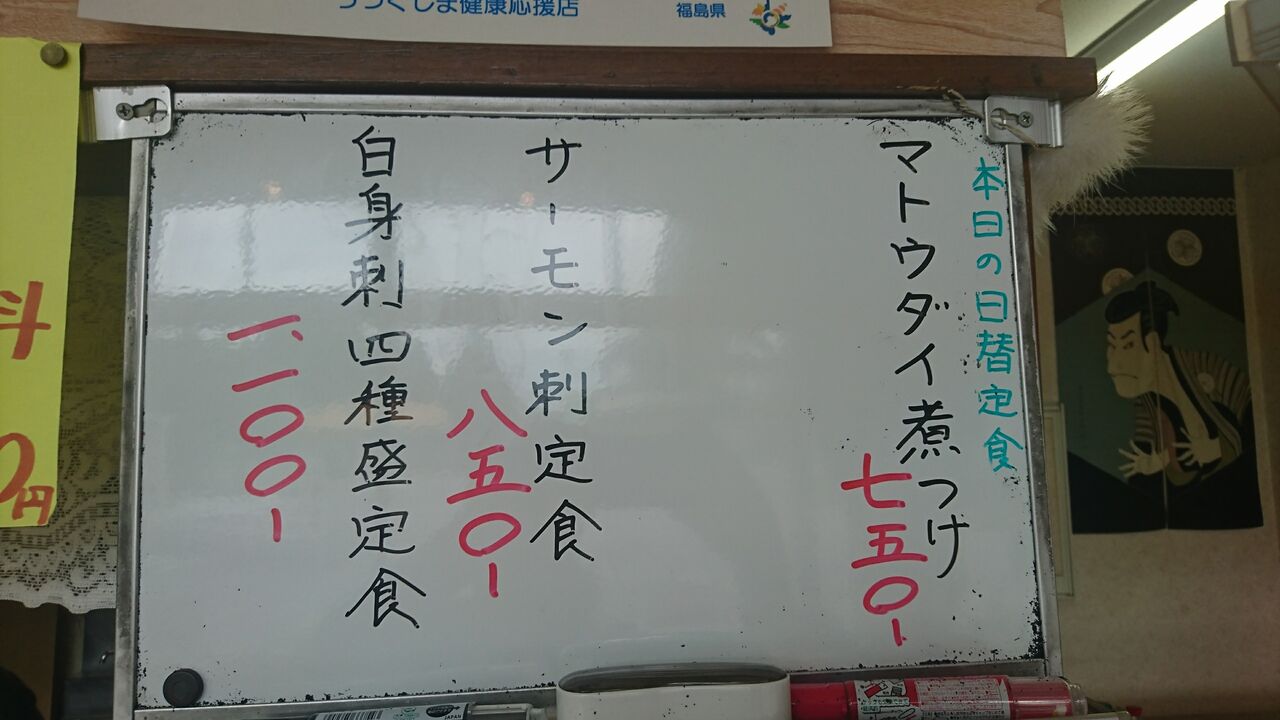 うつくしま健康応援店
福島県
本日の日替定食
マトウダイ煮つけ
七五〇-
サーモン刺定食
八五〇-
白身刺四種盛定食
一、一〇〇-
斗
0円
JAPAN